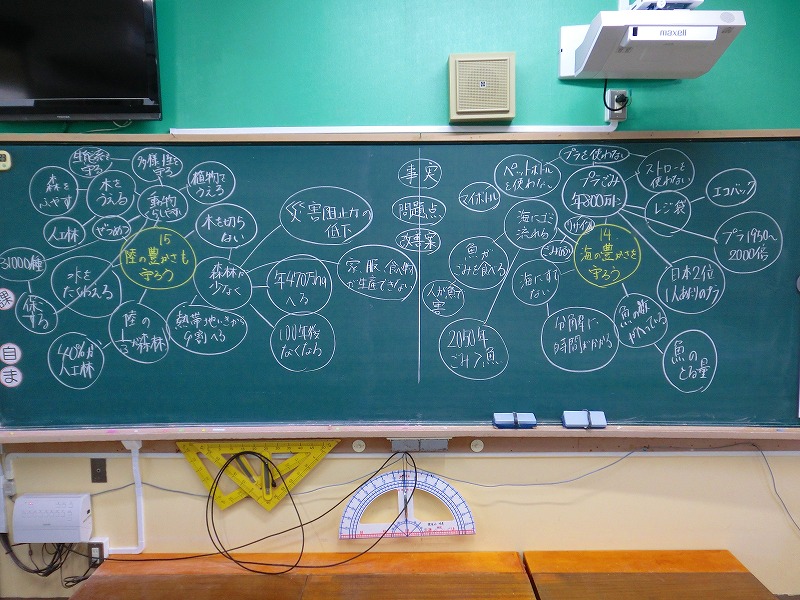 生態系を
守る
多様性を
守る
森を
ふやす
木を
うえる
動物
植物を
うえる
人工林
ぜつめつ
木を切ら
ない
災害防止力の
低下
15
陸の豊かさも
守ろう
水を
たくわえる
森林が
少なく
年470万ha
へる
家、服、食べ物
が生産できない
保ご
する
陸の
1/3が森林
熱帯地いきから
9割へる
100年後
なくなる
40%が
人工林
課
自
ま
事実
問題点
改善案
ペットボトル
を使わない
プラを使わない
ストローを
使わない
マイボトル
プラごみ
年800万t
レジ袋
エコバッグ
海にゴミ
流れる
リサイクル
14
海の豊かさを
守ろう
プラ1950~
200倍
魚が
ごみを食べる
海にすて
ない
人が魚で
害
日本2位
1人あたりのプラ
2050年
ごみ>魚
分解に
時間がかかる
魚の数
がへっている
魚の
とる量
maxell
TOSHIBA